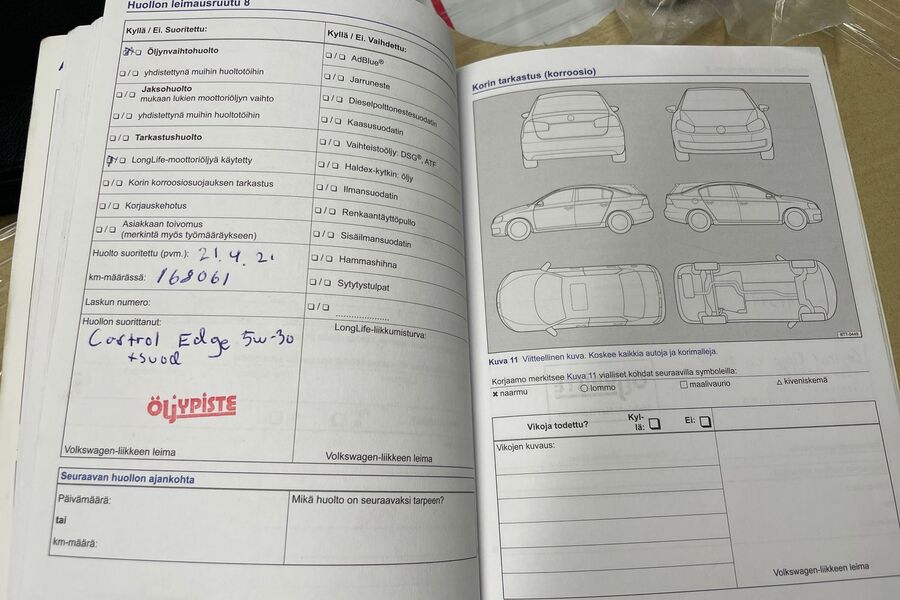 Huollon leimausruutu 8
Kyllä / Ei. Suoritettu:
Öljynvaihtohuolto
yhdistettynä muihin huoltotöihin
Jaksohuolto
mukaan lukien moottoriöljyn vaihto
yhdistettynä muihin huoltotöihin
Tarkastushuolto
LongLife-moottoriöljyä käytetty
Korin korroosiosuojauksen tarkastus
Korjauskehotus
Asiakkaan toivomus
(merkintä myös työmääräykseen)
Huolto suoritettu (pvm.): 21.4.21
km-määrässä: 168061
Laskun numero:
Huollon suorittanut:
Castrol Edge 5w-30
+suod
ÖLJYPISTE
Volkswagen-liikkeen leima
Kyllä / Ei. Vaihdettu:
AdBlue®
Jarruneste
Dieselpolttonestesuodatin
Kaasusuodatin
Vaihteistoöljy: DSG®, ATF
Haldex-kytkin: öljy
Ilmansuodatin
Renkaantäyttöpullo
Sisäilmansuodatin
Hammashihna
Sytytystulpat
LongLife-liikkumisturva:
Volkswagen-liikkeen leima
Seuraavan huollon ajankohta
Päivämäärä:
tai
km-määrä:
Mikä huolto on seuraavaksi tarpeen?
Korin tarkastus (korroosio)
BTT-0449
Kuva 11 Viitteellinen kuva. Koskee kaikkia autoja ja korimalleja.
Korjaamo merkitsee Kuva 11 vialliset kohdat seuraavilla symboleilla:
× naarmu ○ lommo □ maalivaurio △ kiveniskemä
Vikoja todettu? Kyl-
lä: Ei:
Vikojen kuvaus:
Volkswagen-liikkeen leima